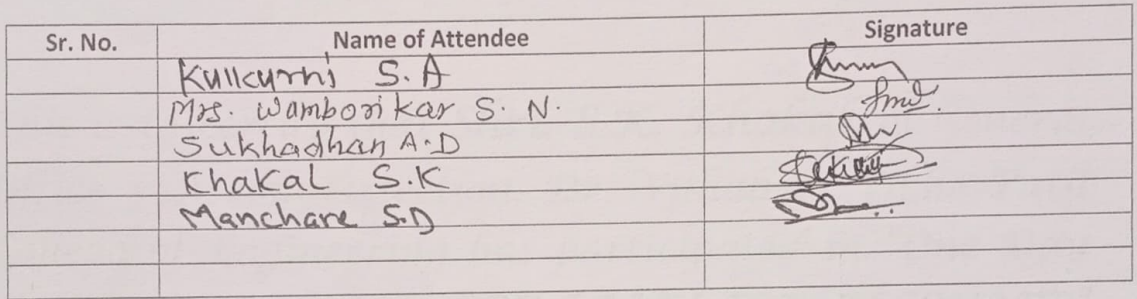 Sr. No. Name of Attendee Signature
Kullcurni S.A
Mrs. Wamborikar S. N.
Sukhadhan A.D
Khakal S.K
Manchare S.D